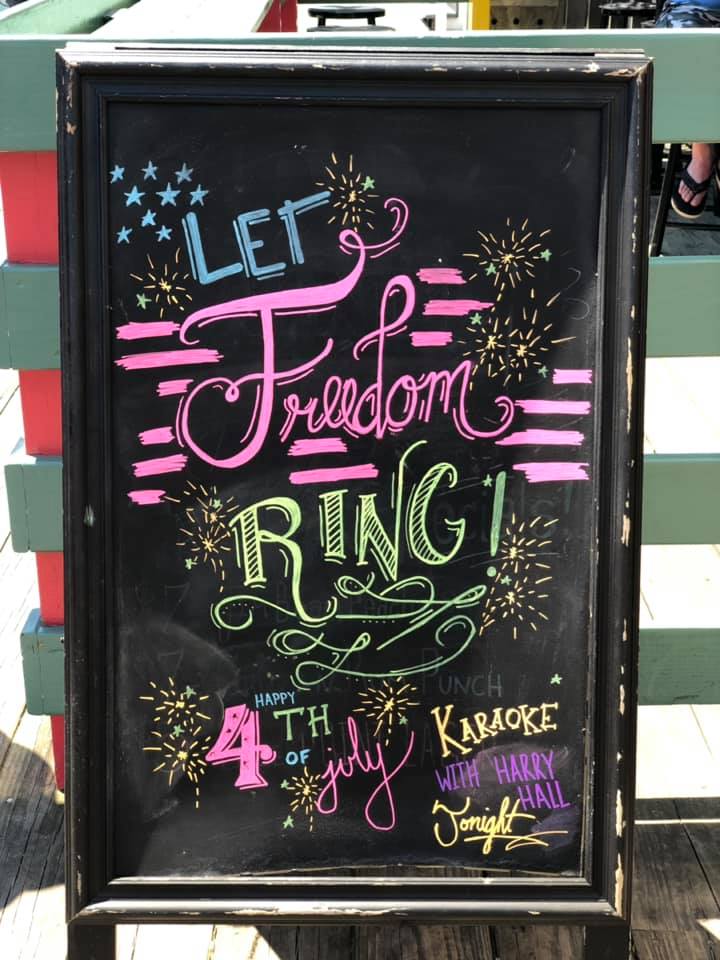 LET
Freedom
RING!
PUNCH
HAPPY
4TH
OF
july
KARAOKE
WITH HARRY
HALL
Tonight